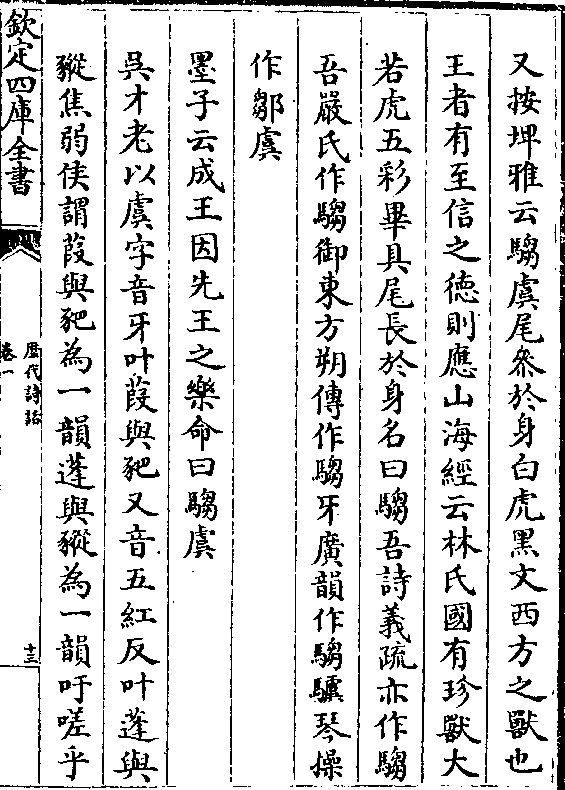 又按埤雅云騶虞尾叅於身白虎黑文西方之獸也
王者有至信之徳則應山海經云林氏國有珍獸大
若虎五彩畢具尾長於身名曰騶吾詩義疏亦作騶
吾嚴氏作騶御東方朔傳作騶牙廣韻作騶驉琴操
作鄒虞
墨子云成王因先王之樂命曰騶虞
吳才老以虞字音牙叶葭與豝又音五紅反叶蓬與
豵焦弱侯謂葭與豝為一韻蓬與豵為一韻吁嗟乎
欽定四庫全書
歴代詩話
卷一
十三